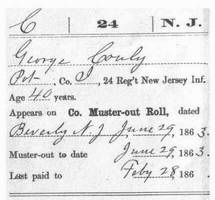 C 24 N. J.
George Conly
Pvt., Co. I, 24 Reg't New Jersey Inf.
Age 40 years.
Appears on Co. Muster-out Roll, dated
Beverly N. J June 29, 1863.
Muster-out to date June 29, 1863.
Last paid to Feby 28, 186 .